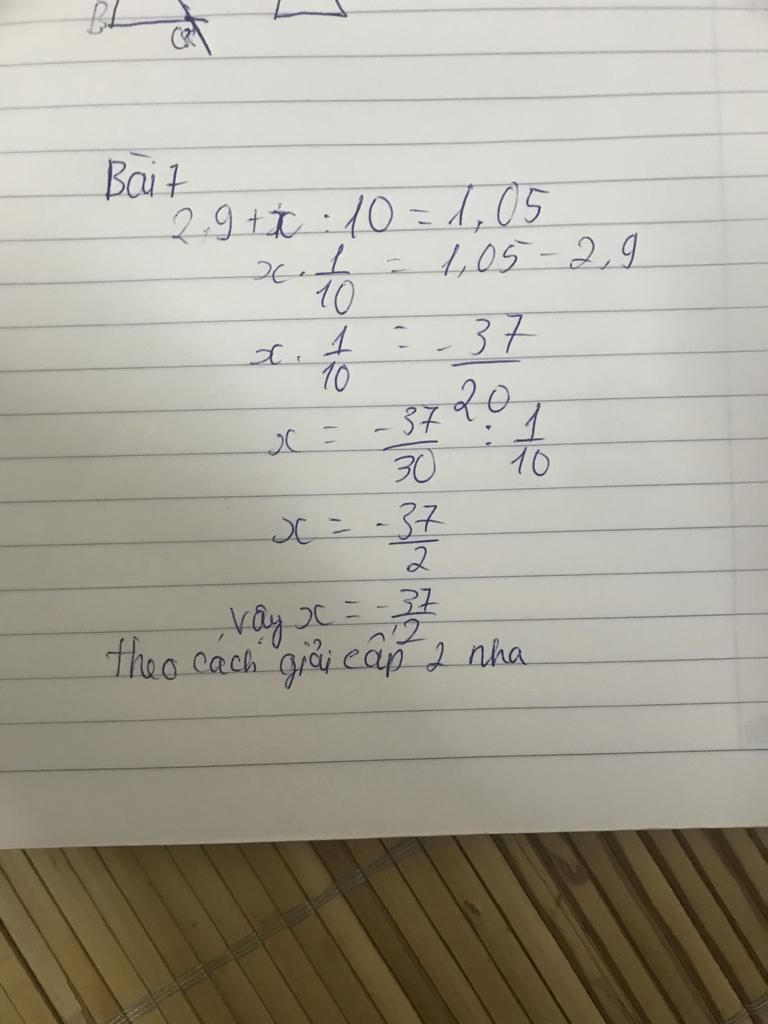 B
Bài 7
2,9 + x : 10 = 1,05
x . 1/10 = 1,05 - 2,9
x . 1/10 = - 37/20
x = -37/30 : 1/10
x = -37/2
vậy x = -37/2
theo cách giải cấp 2 nha